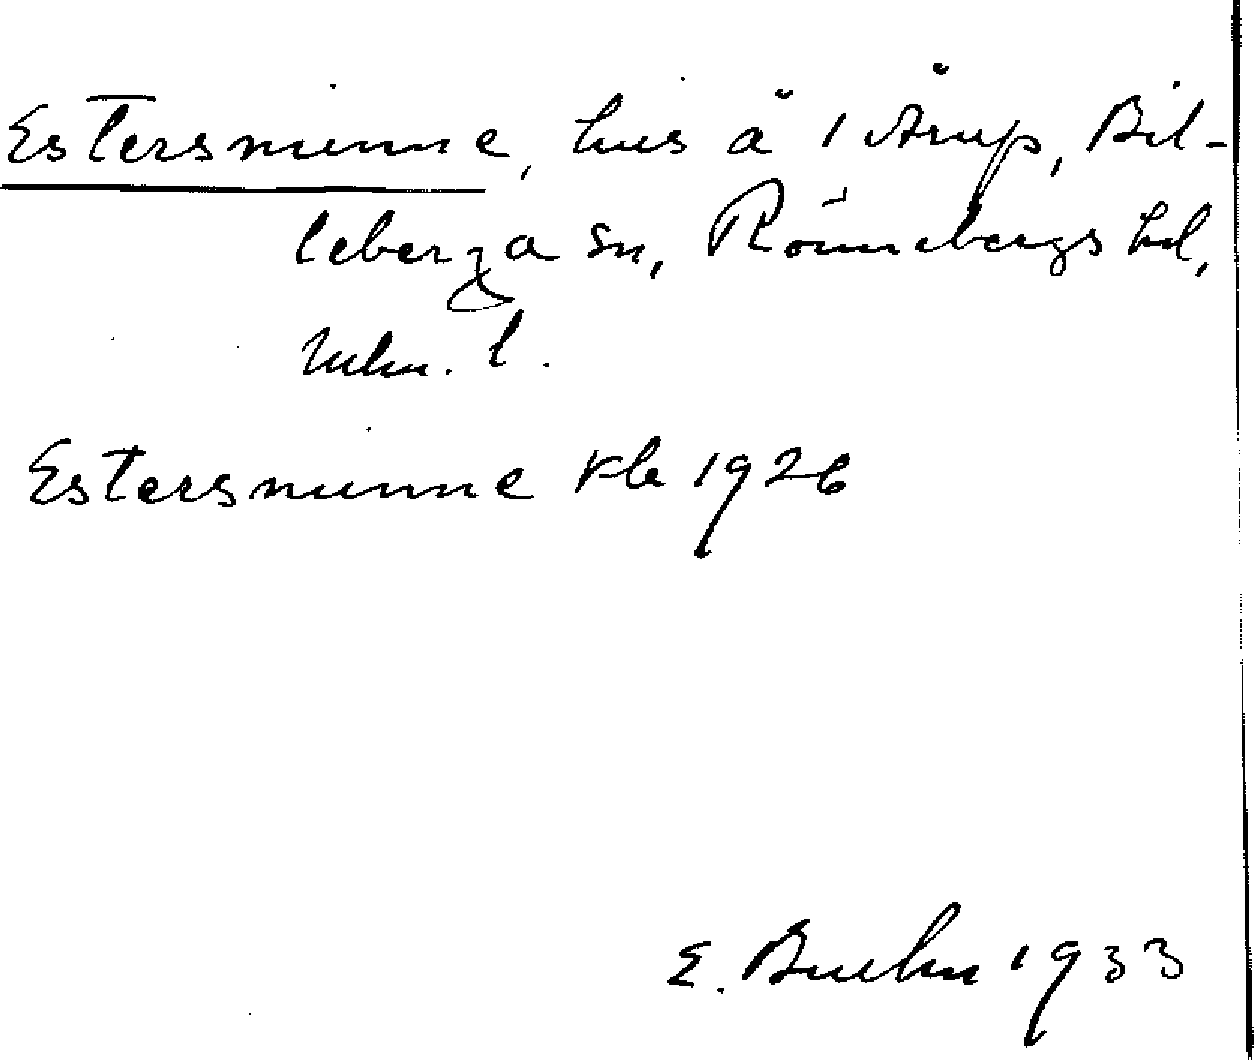 Estersminne, hus å 1 Årup, Bil-
leberga sn, Rönnebergs hd,
Mlm. l.
Estersminne Kla 1926
E. Bruhn 1933